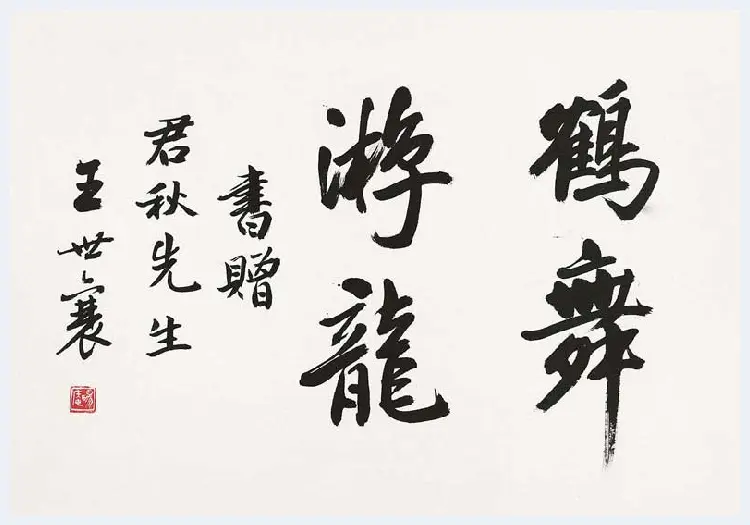 鶴舞
游龍
書贈
君秋先生
王世襄